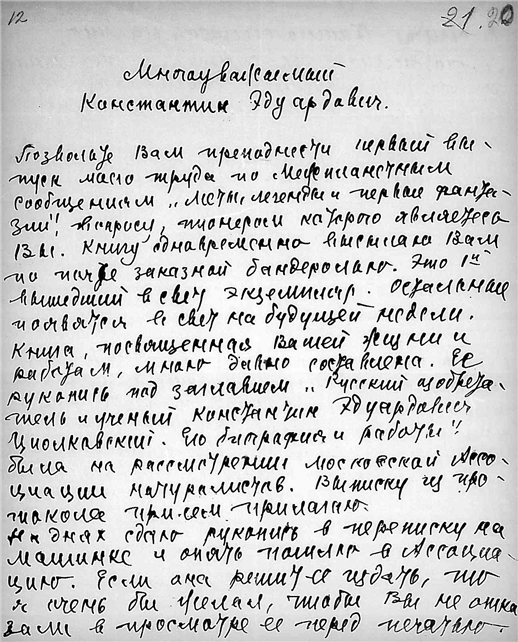 12 21. 20
Многоуважаемый
Константин Эдуардович.
Позвольте Вам преподнести первый вы-
пуск моего труда по межпланетным
сообщениям „Мечты, легенды и первые фанта-
зии" вопросу, пионером которого являетесь
Вы. Книгу одновременно высылаю Вам
по почте заказной бандеролью. Это 1ый
вышедший в свет экземпляр. Остальные
появятся в свет на будущей недели.
Книга, посвященная Вашей жизни и
работам, мною давно составлена. Ее
рукопись под заглавием „Русский изобрета-
тель и ученый Константин Эдуардович
Циолковский. Его биография и работы"
была на рассмотрении Московской Ассо-
циации натуралистов. Выписку из про-
токола при сем прилагаю.
На днях сдаю рукопись в переписку на
машинке и опять пошлю в Ассоциа-
цию. Если она решит ее издать, то
я очень бы желал, чтобы Вы не отка
зали в просмотре ее перед печатью.